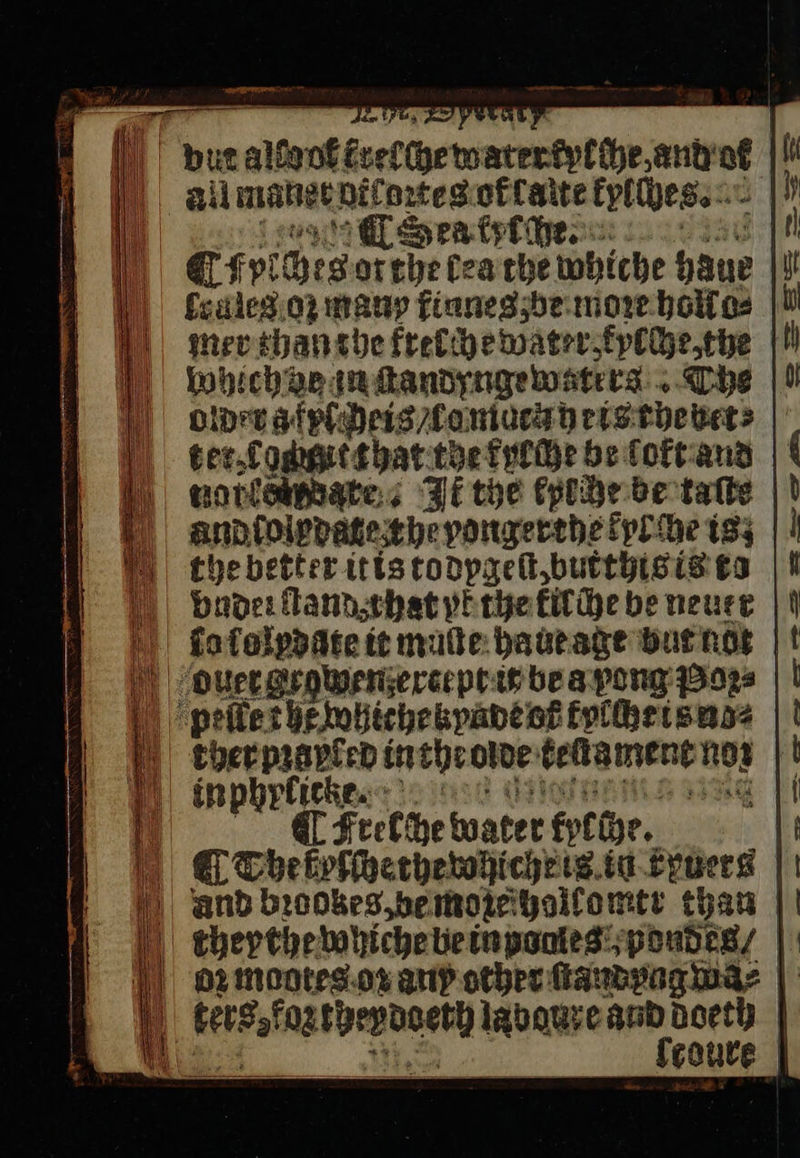 but also of fresshe water fysshe, and of
all maner of sortes of salte fysshes.
¶ Sea fysshe.
¶ Fysshes of the sea the whiche haue
scales or many finnes, be more holso-
mer than the fresshe water fysshe, the
whiche be in standynge waters. The
older a fysshe is, so muche he is the bet-
ter, so that the fysshe be soft and
not solydate. If the fysshe be faste
and solydate, the yonger the fysshe is,
the better it is to dygest, but this is to
vnderstand, that yf the fisshe be neuer
so solydate it muste haue age but not
ouer growen, except it be a yong Pors-
pesse the whiche kynde of fysshe is nas
ther praysed in the olde testament nor
in physicke.
¶ Fresshe water fysshe.
¶ The fysshe the whiche is in ryuers
and brookes, be more holsomer than
they the whiche be in pooles, pondes/
or mootes or any other standynge wa-
ters, for they doeth laboure and doeth
scoure